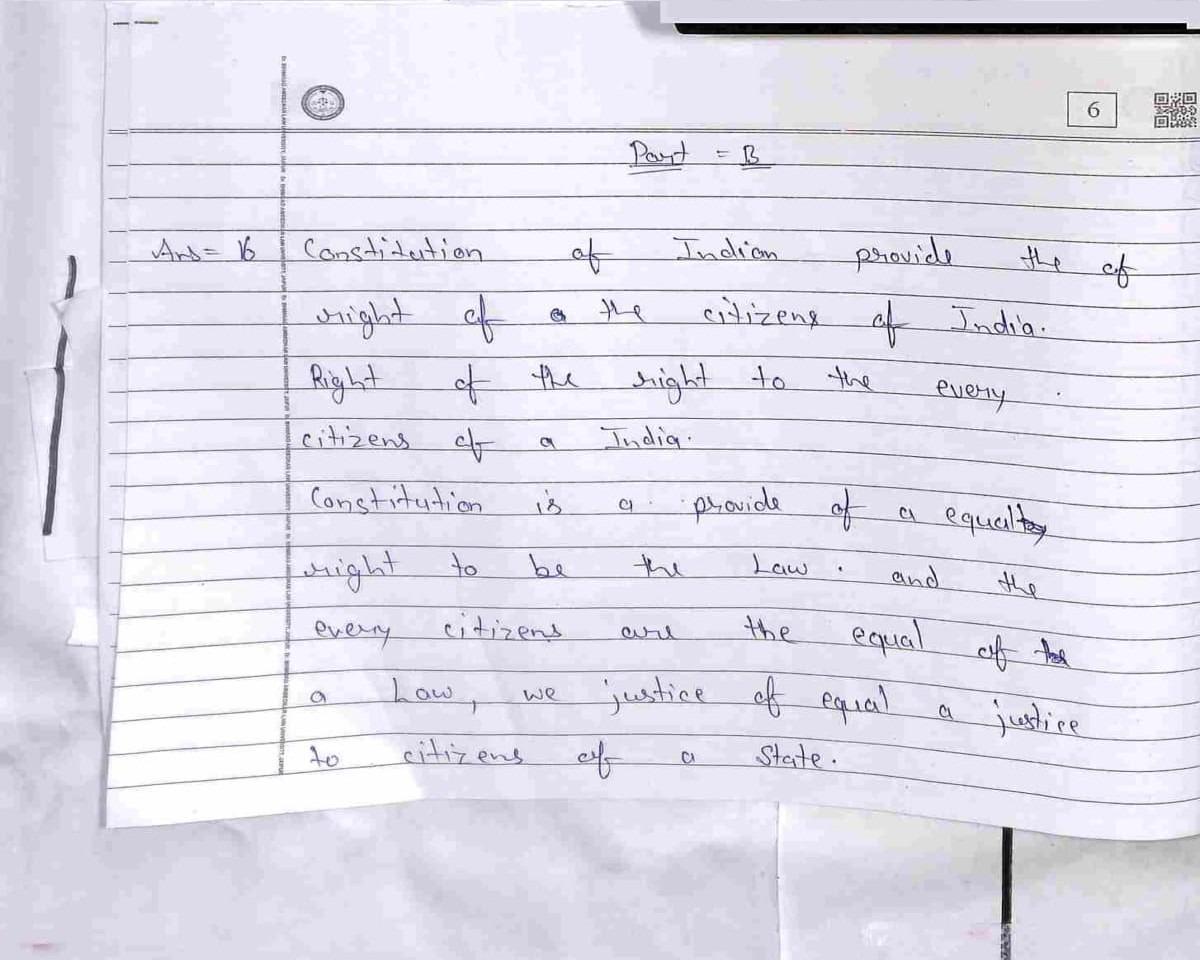 6
Part = B
Ans= 16 Constitution of Indian provide the of
right of a the citizens of India.
Right of the right to the every
citizens of a India.
Constitution is a provide of a equal
right to be the Law. and the
every citizens are the equal of
a Law, we justice of equal a justice
to citizens of a State.